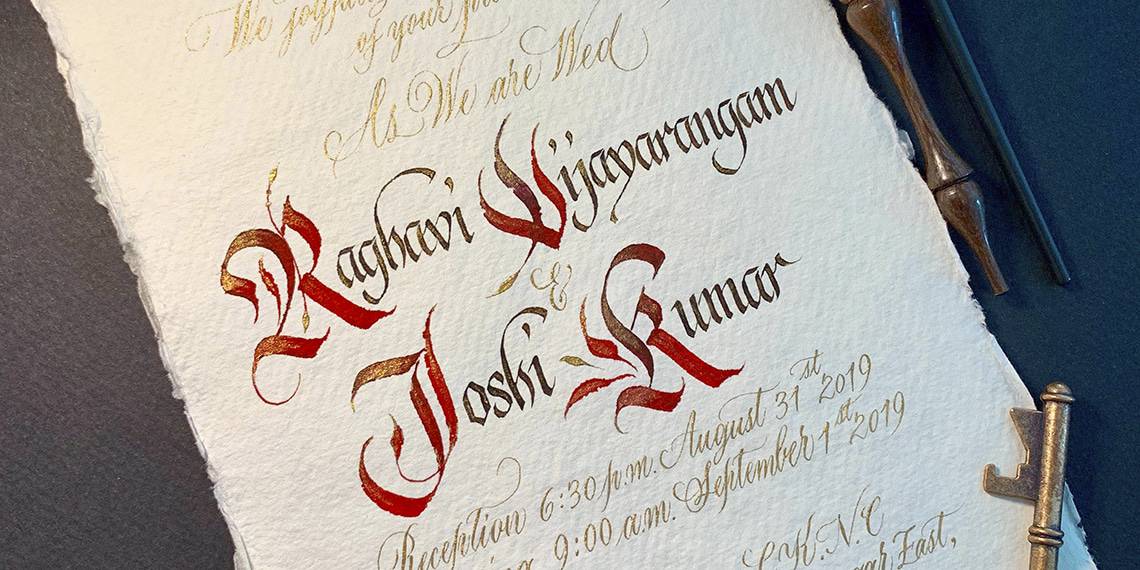 We joyfully
of your
As We are Wed
Raghavi Vijayarangam
&
Joshi Kumar
Reception 6:30 p.m. August 31st 2019
9:00 a.m. September 1st 2019
S.K.N.C
East,